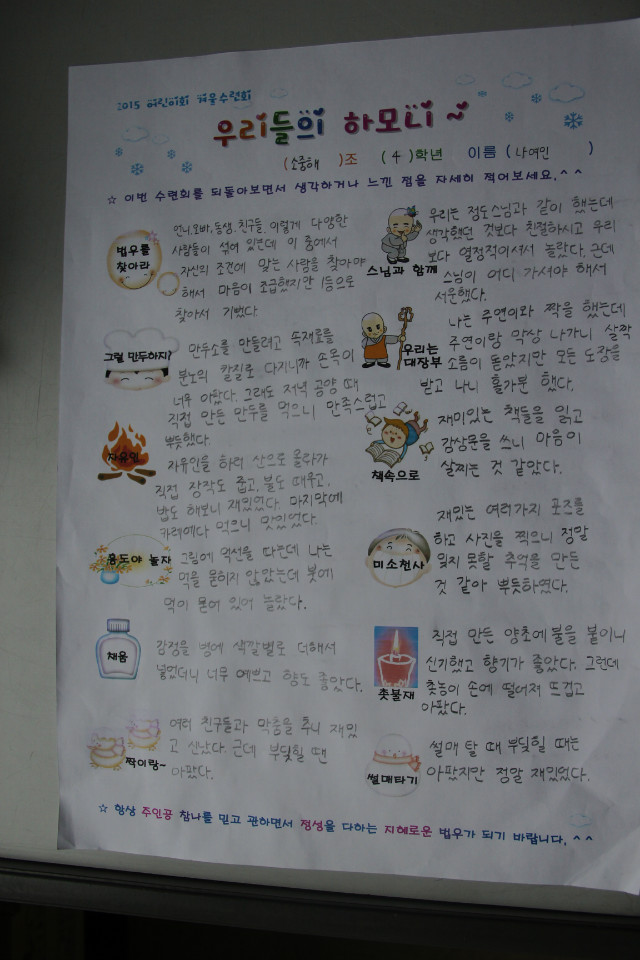 2015 어린이회 겨울수련회
우리들의 하모니~
(소중해 )조 (4)학년 이름 (나여민 )
☆ 이번 수련회를 되돌아보면서 생각하거나 느낀 점을 자세히 적어보세요.^^
법우를
찾아라
언니,오빠,동생,친구들, 이렇게 다양한
사람들이 섞여 있는데 이 중에서
자신의 조건에 맞는 사람을 찾아야
해서 마음이 조급했지만 1등으로
찾아서 기뻤다.
스님과 함께
우리는 정도스님과 같이 했는데
생각했던 것보다 친절하시고 우리
보다 열정적이셔서 놀랐다. 근데
스님이 어디 가셔야 해서
서운했다.
그럴 만두하지?
만두소를 만들려고 속재료를
분노의 칼질로 다지니까 손목이
너무 아팠다. 그래도 저녁 공양 때
직접 만든 만두를 먹으니 만족스럽고
뿌듯했다.
우리는
대장부
나는 주연이와 짝을 했는데
주연이랑 악상 나가니 살짝
소름이 돋았지만 모든 도장을
받고 나니 홀가분 했다.
자유인
자유인을 하러 산으로 올라가
직접 장작도 줍고, 불도 때우고,
밥도 해보니 재밌었다. 마지막에
카레에다 먹으니 맛있었다.
책속으로
재미있는 책들을 읽고
감상문을 쓰니 마음이
살찌는 것 같았다.
용도야 놀자
그림에 먹선을 따는데 나는
먹을 묻히지 않았는데 붓에
먹이 묻어 있어 놀랐다.
미소천사
재밌는 여러가지 포즈를
하고 사진을 찍으니 정말
잊지 못할 추억을 만든
것 같아 뿌듯하였다.
채움
감정을 병에 색깔별로 더해서
넣었더니 너무 예쁘고 향도 좋았다.
촛불재
직접 만든 양초에 불을 붙이니
신기했고 향기가 좋았다. 그런데
촛농이 손에 떨어져 뜨겁고
아팠다.
짝이랑~
여러 친구들과 막춤을 추니 재밌
고 신났다. 근데 부딪힐 땐
아팠다.
썰매타기
썰매 탈 때 부딪힐 때는
아팠지만 정말 재밌었다.
☆ 항상 주인공 참나를 믿고 관하면서 정성을 다하는 지혜로운 법우가 되기 바랍니다.^^